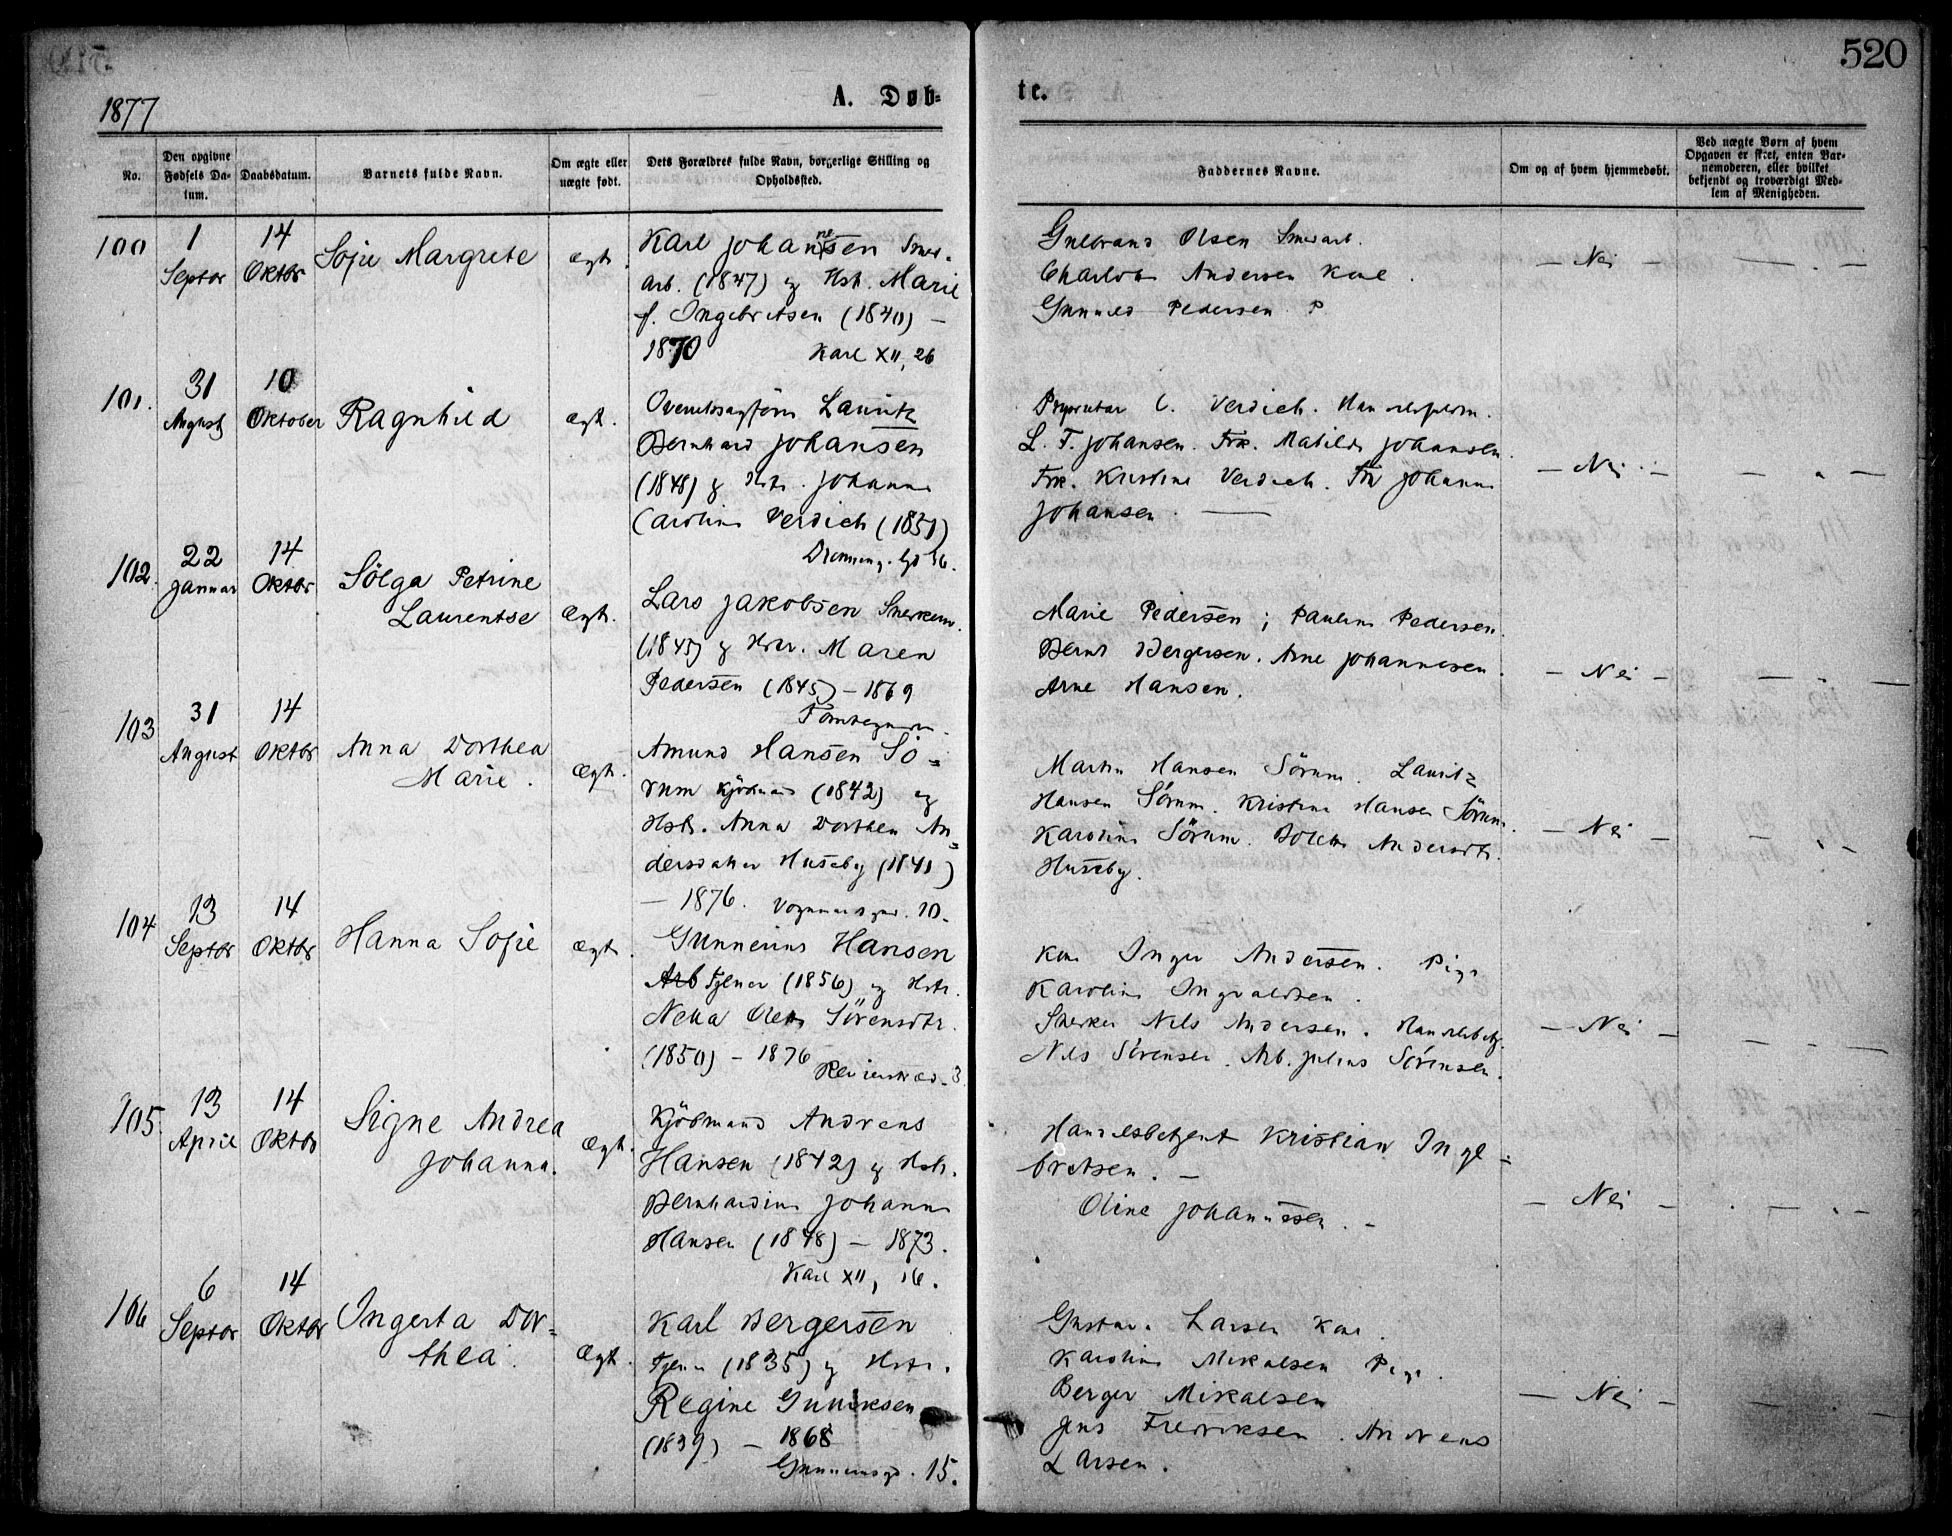 520
1877
A. Døb-
te.
No.
Den opgivne
Fødsels Da-
tum.
Daabsdatum.
Barnets fulde Navn.
Om ægte eller
uægte født.
Dets Forældres fulde Navn, borgerlige Stilling og
Opholdssted.
Faddernes Navne.
Om og af hvem hjemmedøbt.
Ved uægte Børn af hvem
Opgaven er skeet, enten Bar-
nemoderen, eller hvilket
bekjendt og troværdigt Med-
lem af Menigheden.
100
1
Septbr
14
Oktbr
Sofie Margrete
ægt.
Karl Johannesen
arb. (1847) og Hstr. Marie
f. Ingebretsen (1840) —
1870 Karl XII, 26
Gulbrand Olsen
Andersen Kone.
Gunnild Pedersen P
— Nei —
101.
31
August
10
Oktober
Ragnhild
ægt.
Lauritz
Bernhard Johansen
(1848) og Hstr. Johanne
Caroline Verdich (1851)
Dronning. gd 56.
C. Verdich.
L. F. Johansen. Frk. Matilde Johansen.
Frk. Kristine Verdich. Fru Johanne
Johansen.
— Nei —
102.
22
Januar
14
Oktbr
Sölga Petrine
Laurentse
Ægt.
Lars Jakobsen
(1845) og Hstr. Maren
Pedersen (1845) — 1869
Marie Pedersen; Pauline Pedersen.
Bernt Bergersen. Arne Johannesen.
Arne Hansen.
— Nei —
103
31
August
14
Oktbr
Anna Dorthea
Marie.
Ægt.
Amund Hansen Sö-
rum Kjöbmand (1842) og
Hstr. Anna Dorthea An-
dersdatter Huseby (1841)
— 1876. 10.
Martin Hansen Sörum. Lauritz
Hansen Sörum. Kristine Hansen Sörum.
Karoline Sörum. Andersdtr.
Huseby.
— Nei —
104
13
Septbr
14
Oktbr
Hanna Sofie
ægt.
Gunnerius Hansen
Arb Tjener (1856) og Hstr.
Olette Sörensdtr.
(1850) — 1876
3
Kone Inger Andersen. Pige
Karoline Ingvaldsen.
Snekker Nils Andersen. Handelsbetj.
Nils Sörensen. Arb. Julius Sörensen.
— Nei —
105.
13
April
14
Oktbr
Signe Andrea
Johanna.
Ægt.
Kjöbmand Andreas
Hansen (1842) og Hstr.
Bernhardine Johanne
Hansen (1848) — 1873.
Karl XII, 16.
Handelsbetjent Kristian Inge-
bretsen. —
Oline Johannesen. —
— Nei —
106
6
Septbr
14
Oktbr
Ingerta Dor-
thea.
Ægt.
Karl Bergersen
Tjener (1835) og Hstr.
Regine Gunniksen
(1839) — 1868
15.
Larsen Kone.
Karoline Mikalsen Pige.
Berger Mikalsen
Jens Fredriksen. Andreas
Larsen.
— Nei —